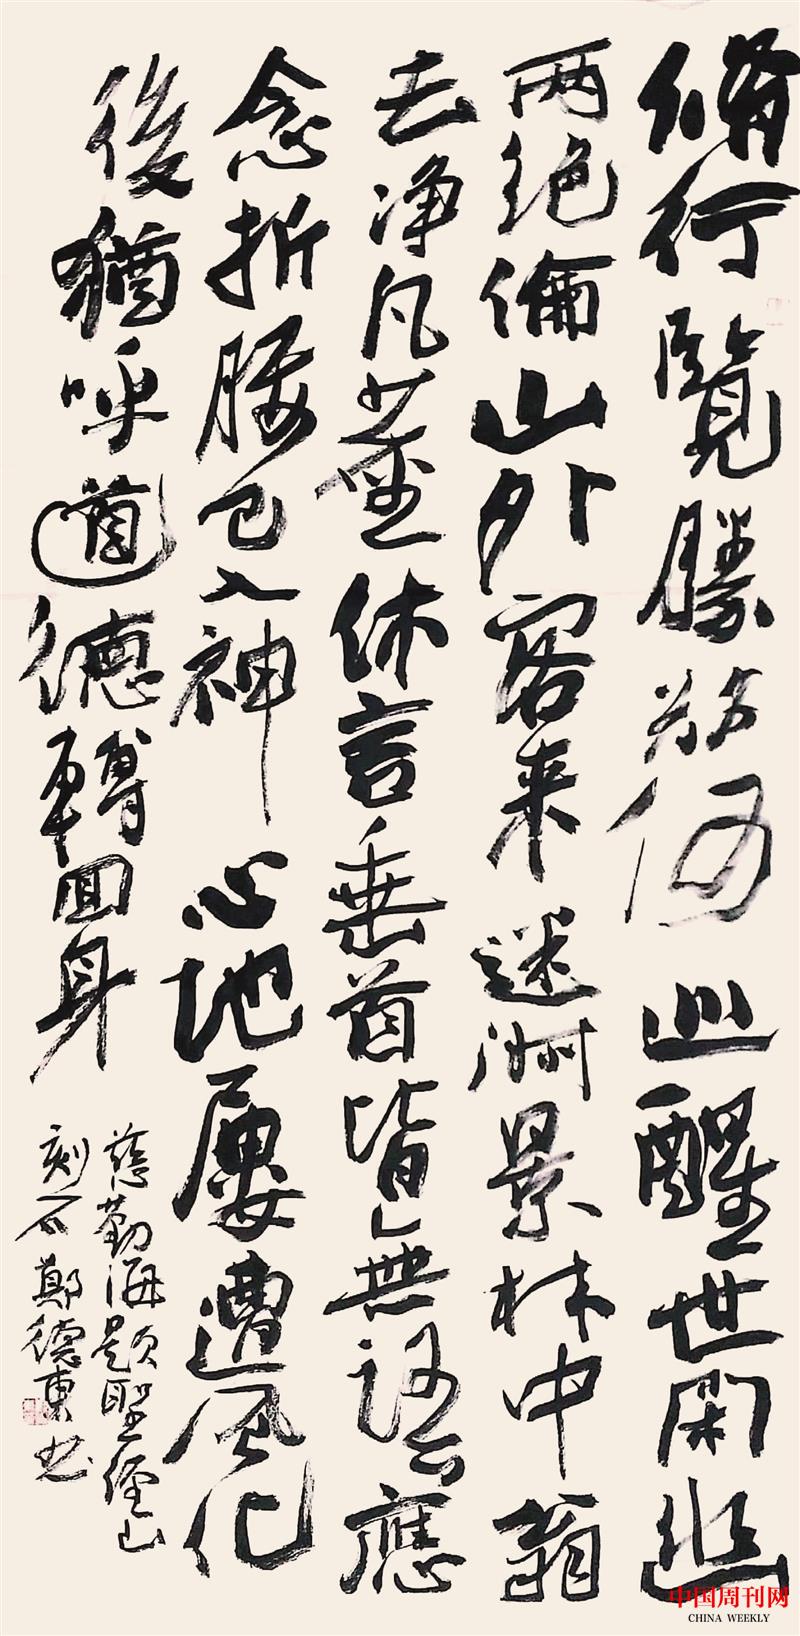 脩行覽勝巡醒世閑
兩絕倫山外客來迷景林中翁
去净凡塵休言垂首皆無語應
念折腰已入神心地屢遭風化
後猶呼道德轉回身
慈勤海題聖經山
刻石鄭德東书
中国周刊网
CHINA WEEKLY